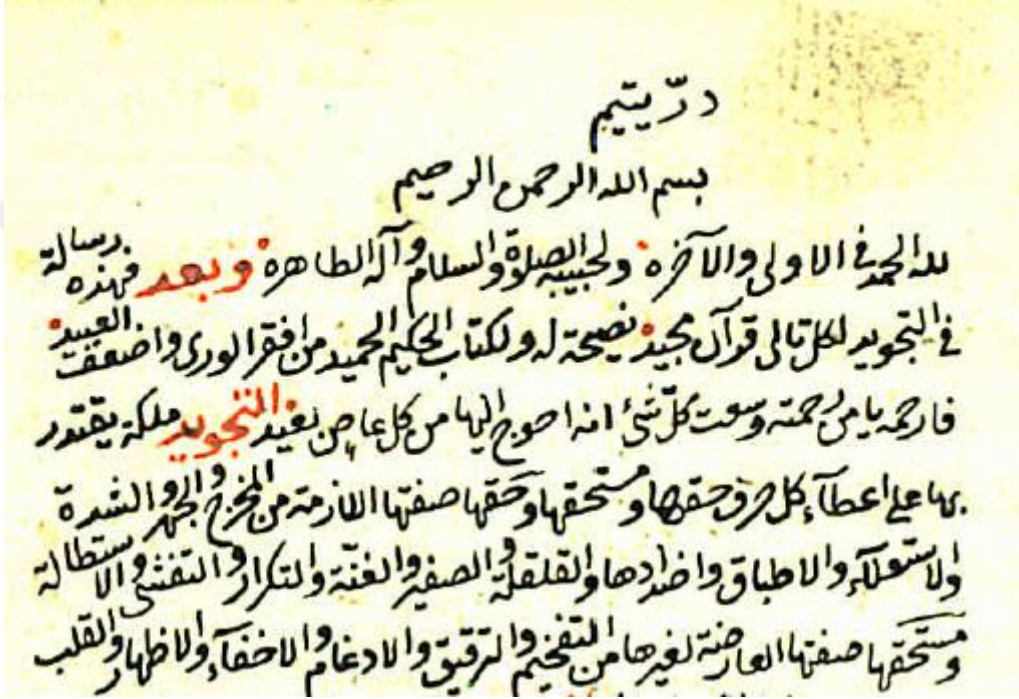 درّ يتيم
بسم الله الرحمن الرحيم
لله الحمد في الاولى والآخرة ولحبيبه الصلوة والسلام وآله الطاهرة وبعد فهذه رسالة
في التجويد لكل تالى قرآن مجيد نصيحة له ولكتاب الحكيم الحميد من افقر الورى واضعف العبيد
فارحمه يا من رحمته وسعت كلّ شئ انه احوج اليها من كل عاص بعيد التجويد ملكة يقتدر
بها على اعطآء كل حرف حقها ومستحقها وحقها صفتها اللازمة من المخرج والجهر والشدة
والاستعلآء والاطباق واضدادها والقلقلة والصفير والغنّة والتكرار والتفشى والاستطالة
ومستحقها صفتها العارضة لغيرها من التفخيم والترقيق والادغام والاخفآء والاظهار والقلب